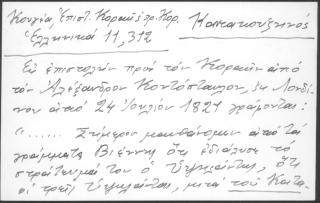 Κουγέα, Ἐπιστ. Κοραῆ πρ. Κορ. Καντακουζηνός
Ἑλληνικά 11, 312
Ἐν ἐπιστολῇ πρὸς τὸν Κοραῆν ἀπὸ
τὸν Ἀλέξανδρον Κοντόσταυλον, ἐκ Λονδί-
νου ἀπὸ 24 Ἰουλίου 1821 γράφονται:
"...... Σήμερον μανθάνομεν ἀπὸ τὰ
γράμματα Βιέννης ὅτι ἐδιάλυσε τὸ
στράτευμά του ὁ Ὑψηλάντης, ὅτι
οἱ τρεῖς Ὑψηλάνται, μετὰ τοῦ Κατα-